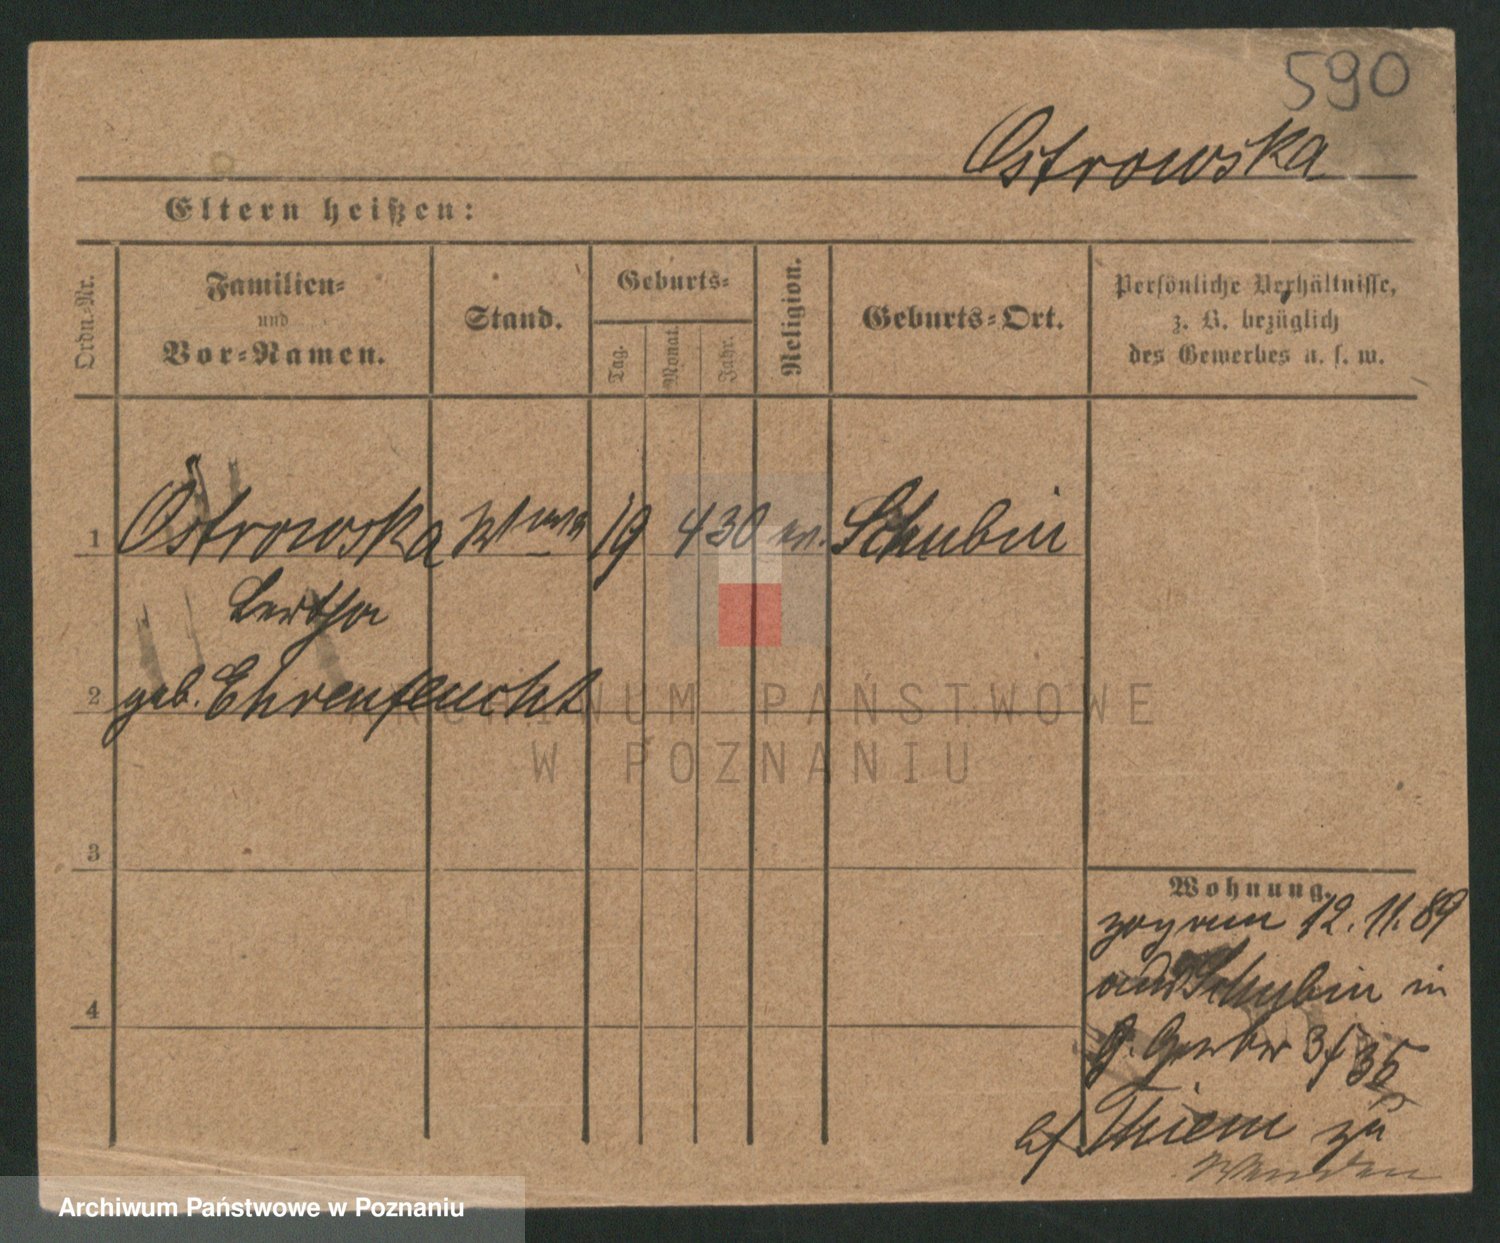 590
Ostrowska
Eltern heißen:
Ordn.-Nr.
Familien-
und
Vor-Namen.
Stand.
Geburts-
Tag.
Monat.
Jahr.
Religion.
Geburts-Ort.
Persönliche Verhältnisse,
z. B. bezüglich
des Gewerbes u. s. w.
1 Ostrowska Wwe 19 4 30 m. Schubin
Bertha
2 geb. Ehrenfeucht
3
4
Wohnung.
zog am 12.11.89
aus Schubin in
G. Gerber 3/35
b/ Thiem zu
Wenden
ARCHIWUM PAŃSTWOWE
W POZNANIU
Archiwum Państwowe w Poznaniu